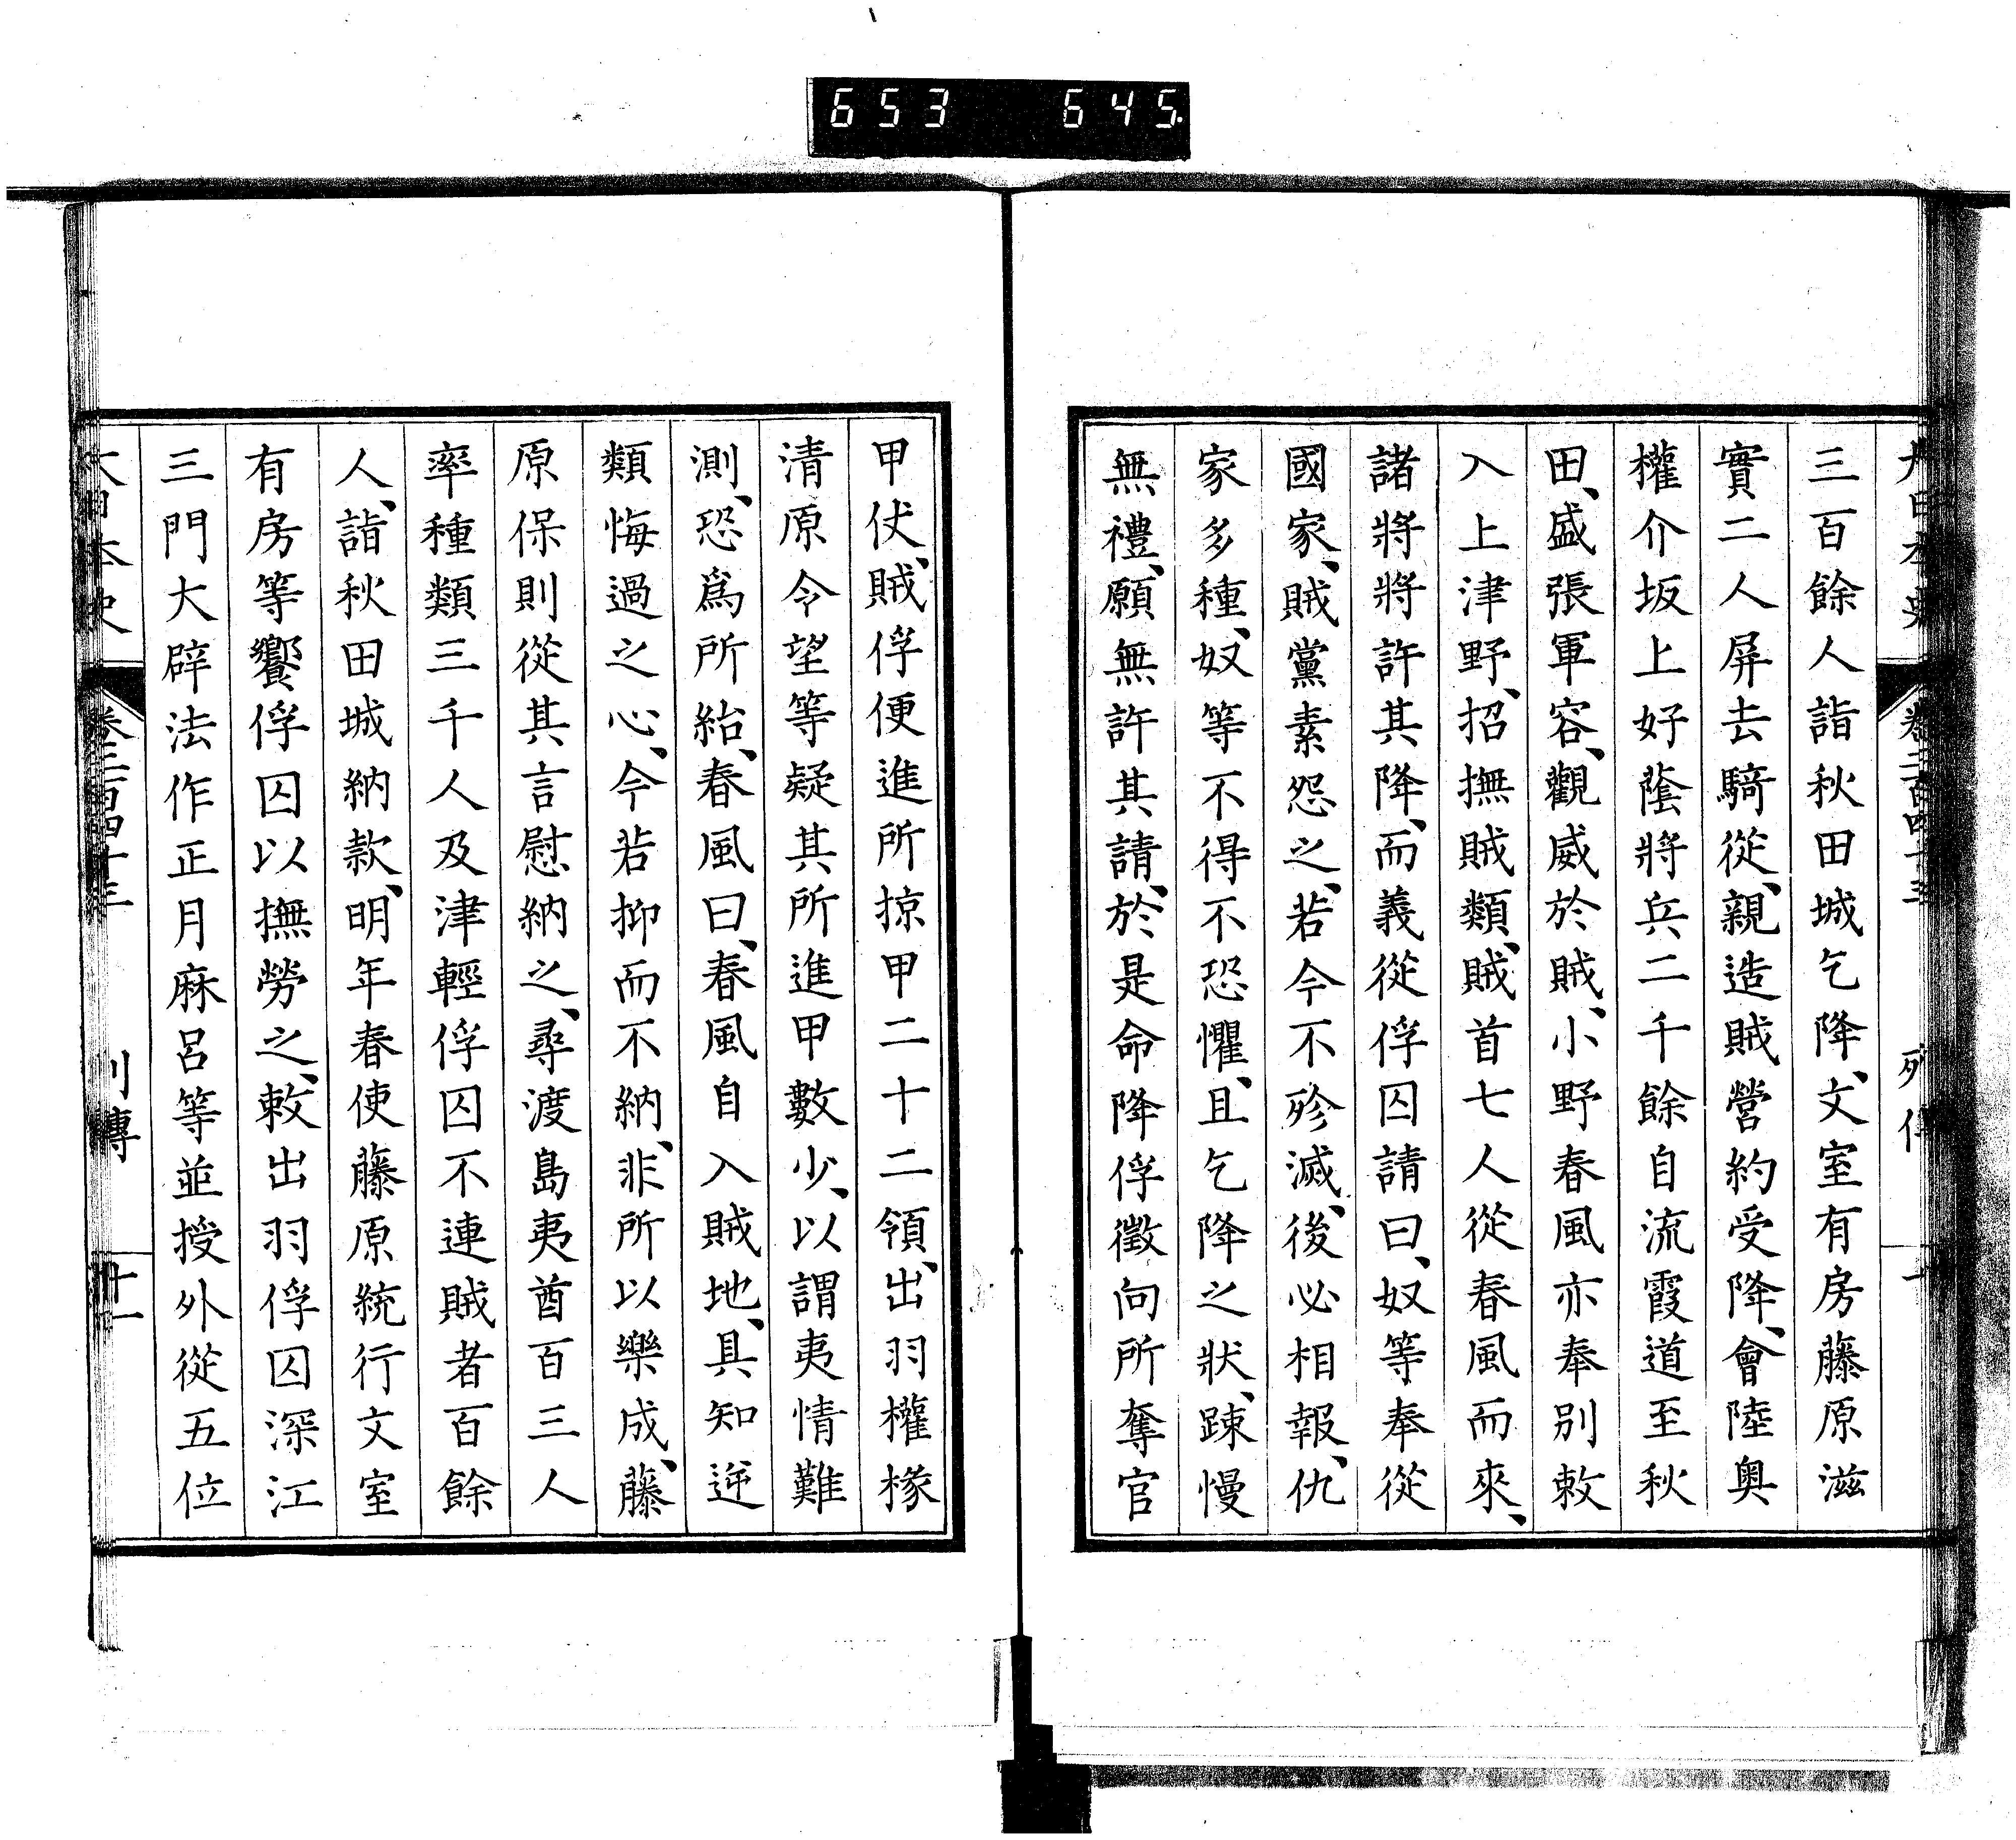 653 645
三百餘人詣秋田城乞降、文室有房藤原滋
實二人屏去騎從、親造賊營約受降、會陸奥
權介坂上好蔭將兵二千餘自流霞道至秋
田、盛張軍容、觀威於賊、小野春風亦奉別敕
入上津野、招撫賊類、賊首七人從春風而來、
諸將將許其降、而義從俘囚請曰、奴等奉從
國家、賊黨素怨之、若今不殄滅、後必相報、仇
家多種、奴等不得不恐懼、且乞降之狀、踈慢
無禮、願無許其請、於是命降俘徵向所奪官
甲伏、賊俘便進所掠甲二十二領、出羽權椽
清原令望等疑其所進甲數少、以謂夷情難
測、恐爲所紿、春風曰、春風自入賊地、具知逆
類悔過之心、今若抑而不納、非所以樂成、藤
原保則從其言慰納之、尋渡島夷酋百三人
率種類三千人及津輕俘囚不連賊者百餘
人、詣秋田城納款、明年春使藤原統行文室
有房等饗俘囚以撫勞之、敕出羽俘囚深江
三門大辟法作正月麻呂等並授外從五位
大日本史 卷二百四十三 列傳 十一